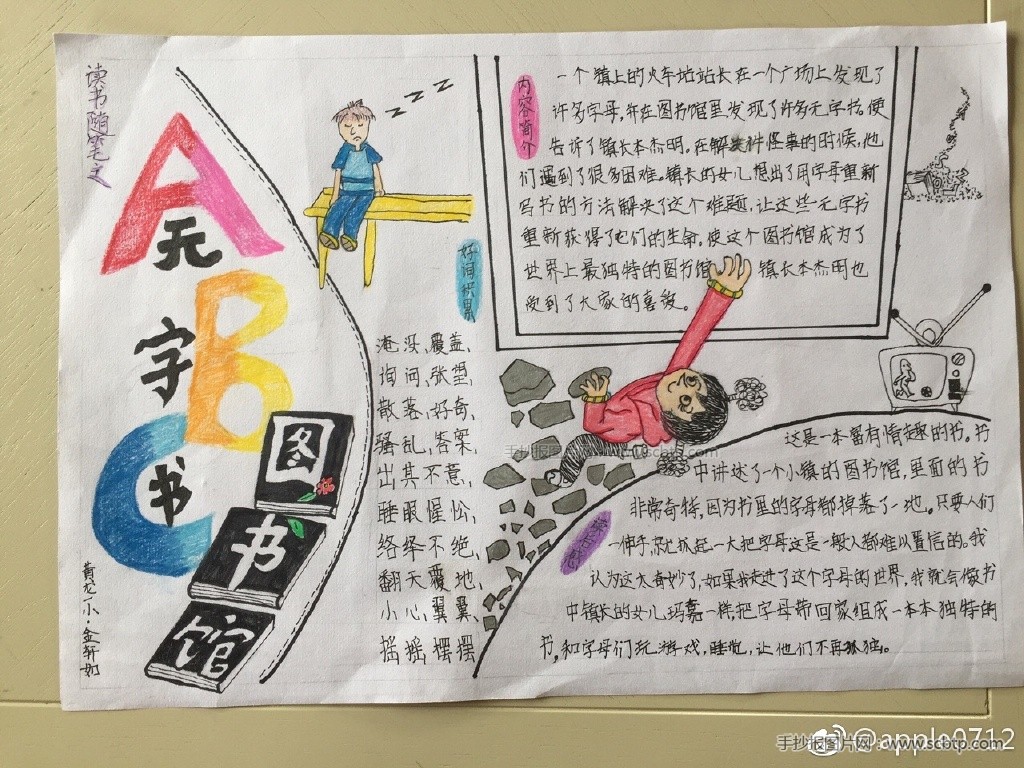 读书随笔之
A
B
C
无
字
书
图
书
馆
黄龙小·金轩如
内容简介
一个镇上的火车站站长在一个广场上发现了
许多字母,并在图书馆里发现了许多无字书。便
告诉了镇长本杰明。在解决件怪事的时候,他
们遇到了很多困难。镇长的女儿想出了用字母重新
写书的方法解决了这个难题,让这些无字书
重新获得了它们的生命。使这个图书馆成为了
世界上最独特的图书馆 镇长本杰明也
受到了大家的喜爱。
zzzz
好词积累
淹没、覆盖、
询问、张望、
散落、好奇、
骚乱、答案、
出其不意、
睡眼惺忪、
络绎不绝、
翻天覆地、
小心翼翼、
摇摇摆摆
这是一本富有情趣的书。书
中讲述了一个小镇的图书馆,里面的书
非常奇特,因为书里的字母都掉落了一地。只要人们
一伸手,就抓起一大把字母这是一般人都难以置信的。我
认为这太奇妙了,如果我走进了这个字母的世界,我就会像书
中镇长的女儿玛嘉一样,把字母带回家组成一本本独特的
书,和字母们玩游戏,睡觉,让他们不再孤独。
手抄报图片网 www.scbtp.com
@apple0712
手抄报图片网:www.scbtp.com